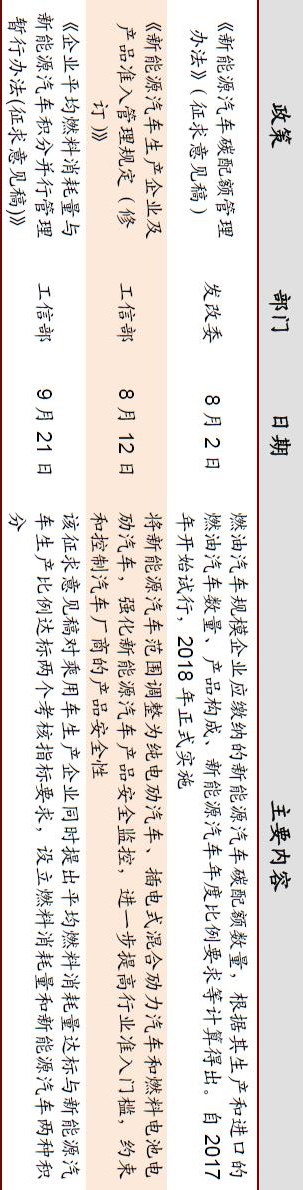 政策 部门 日期 主要内容
《新能源汽车碳配额管理
办法》(征求意见稿)
发改委 8月2日
燃油汽车规模企业应缴纳的新能源汽车碳配额数量，根据其生产和进口的
燃油汽车数量、产品构成、新能源汽车年度比例要求等计算得出。自2017
年开始试行，2018年正式实施
《新能源汽车生产企业及
产品准入管理规定（修
订)》
工信部 8月12日
将新能源汽车范围调整为纯电动汽车、插电式混合动力汽车和燃料电池电
动汽车，强化新能源汽车产品安全监控，进一步提高行业准入门槛，约束
和控制汽车厂商的产品安全性
《企业平均燃料消耗量与
新能源汽车积分并行管理
暂行办法(征求意见稿)》
工信部 9月21日
该征求意见稿对乘用车生产企业同时提出平均燃料消耗量达标与新能源汽
车生产比例达标两个考核指标要求，设立燃料消耗量和新能源汽车两种积
分